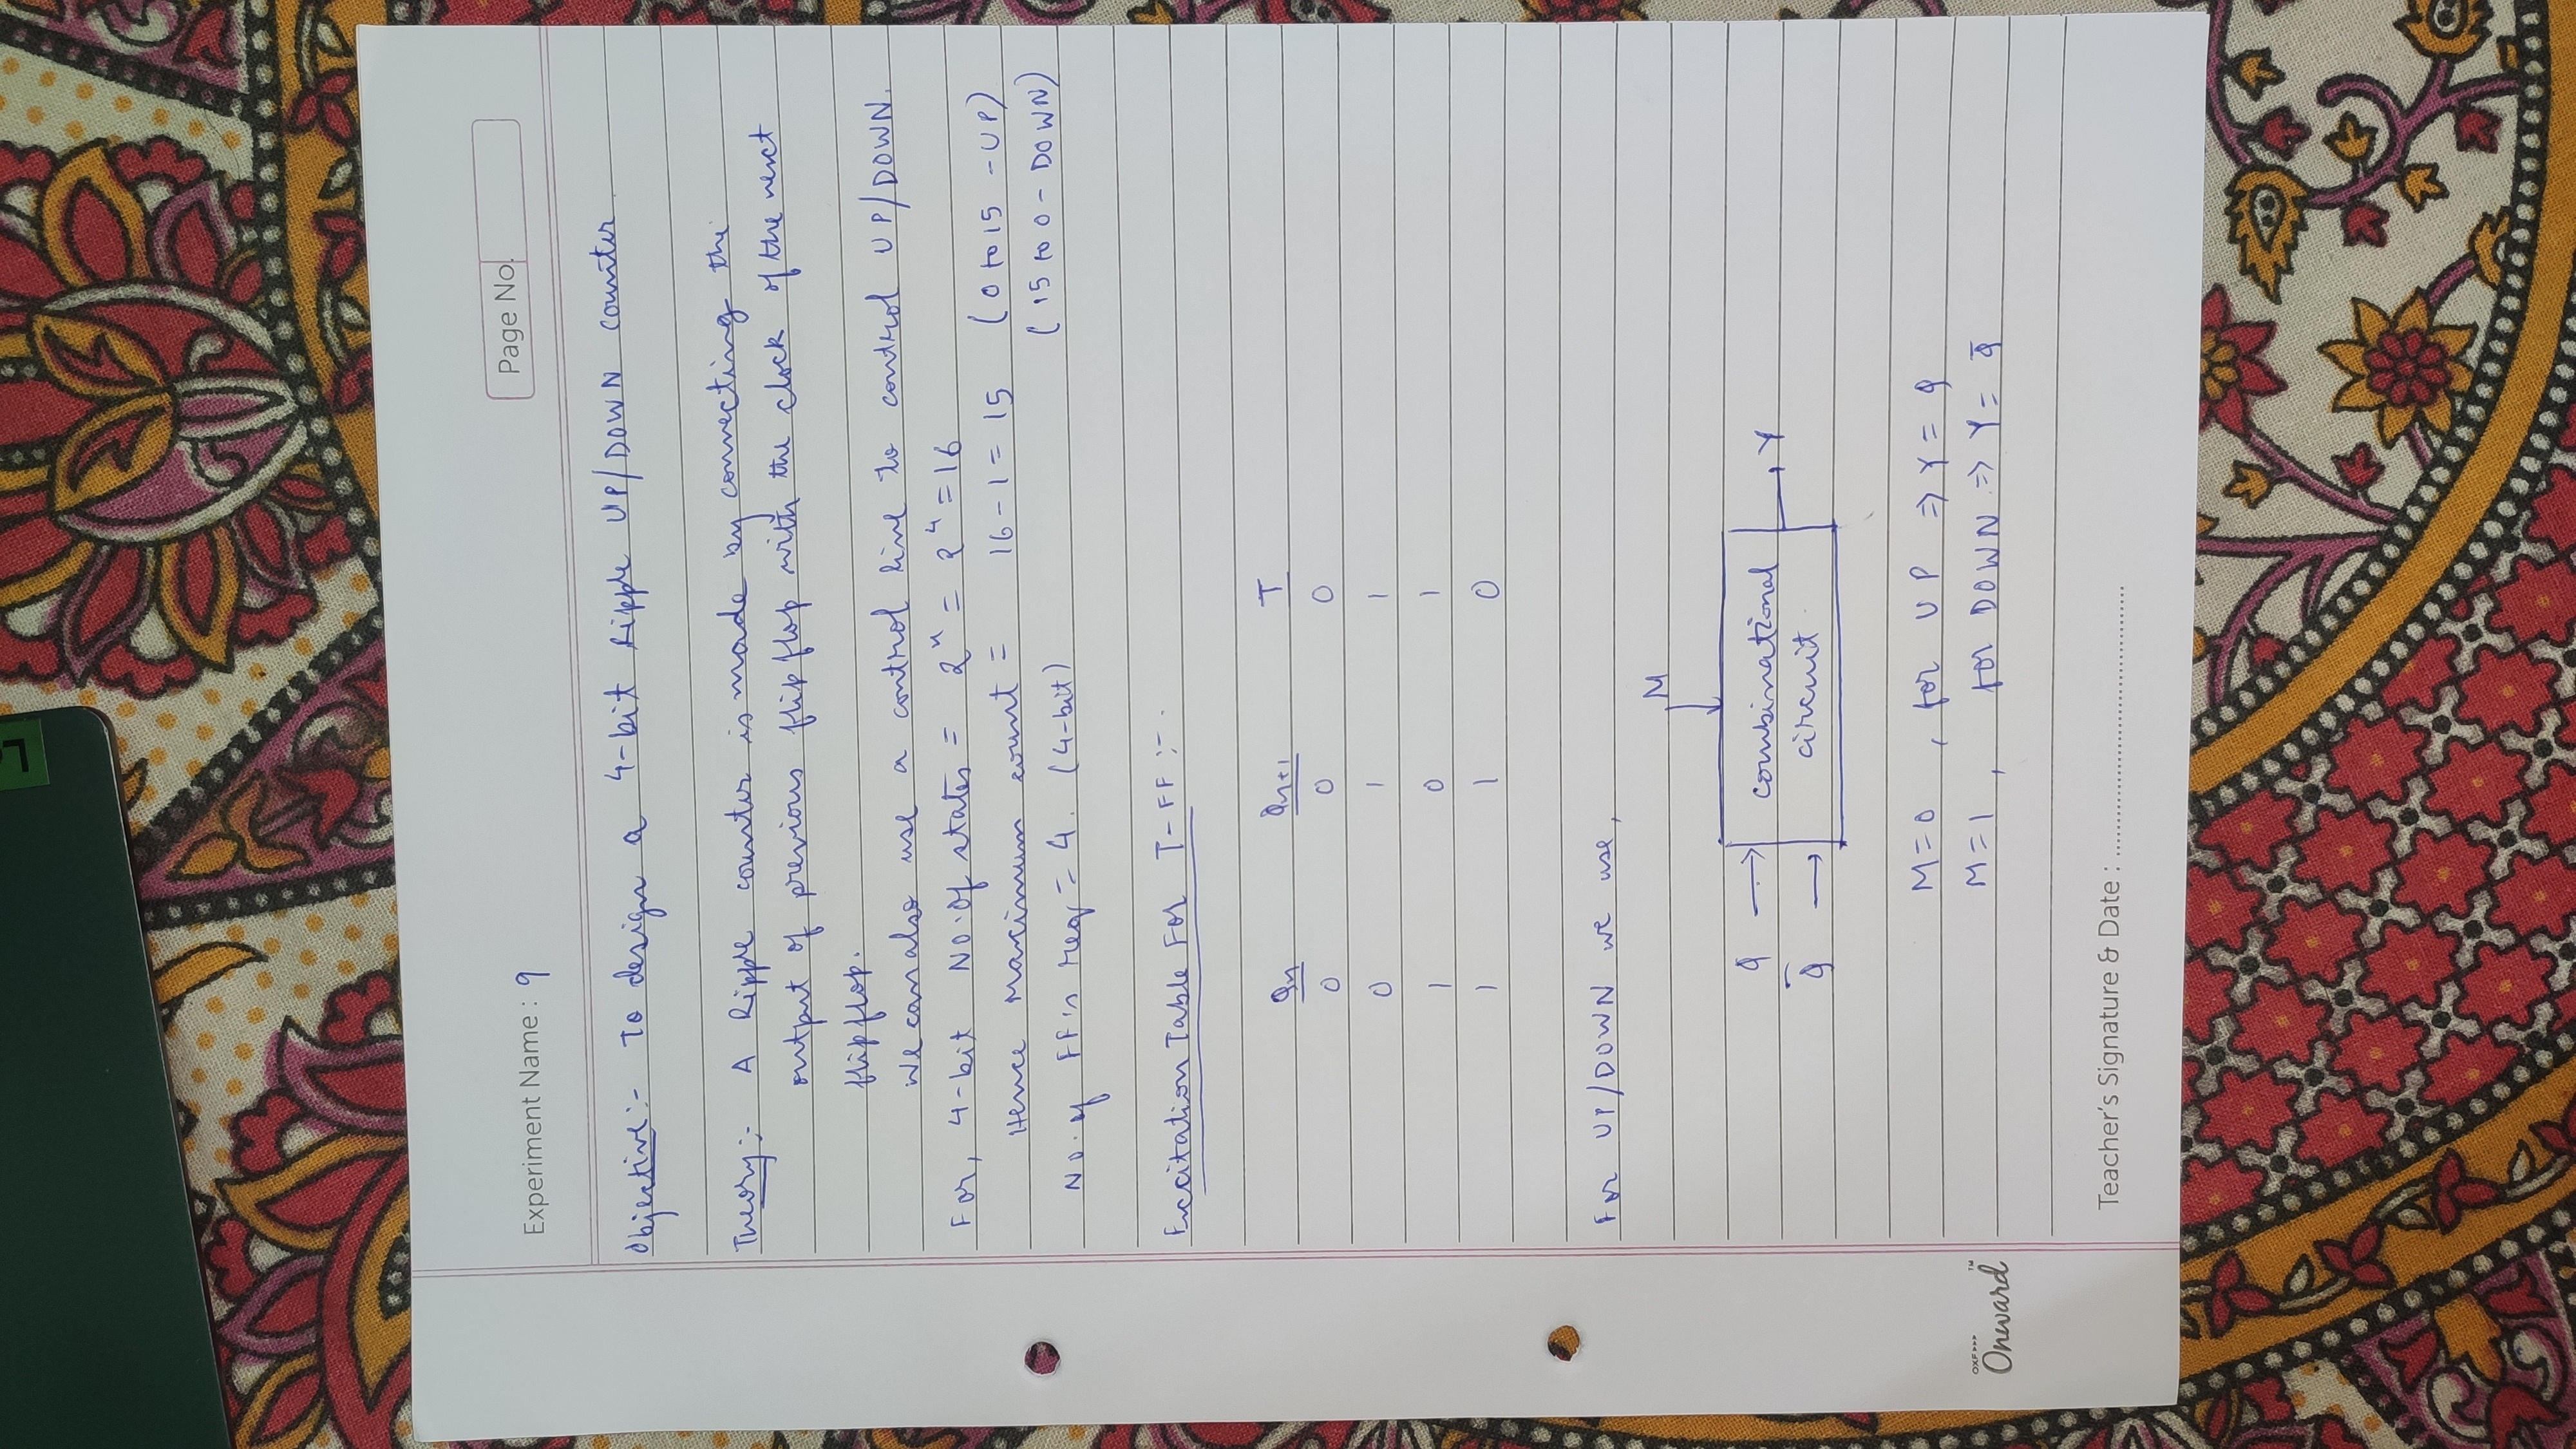 Experiment Name : 9
Page No.
Objective:- To design a 4-bit Ripple UP/DOWN counter.
Theory:- A Ripple counter is made by connecting the
output of previous flip flop with the clock of the next
flip flop.
We can also use a control line to control UP/DOWN.
For, 4-bit No. of states = 2ⁿ = 2⁴ = 16
Hence Maximum count = 16 - 1 = 15 (0 to 15 - UP)
(15 to 0 - DOWN)
No. of FF's req = 4. (4-bit)
Excitation Table For T-FF :-
Qn Qn+1 T
0 0 0
0 1 1
1 0 1
1 1 0
For UP/DOWN we use,
M
Q → combinational → Y
Q̅ → circuit
M = 0 , for UP ⇒ Y = Q
M = 1 , for DOWN ⇒ Y = Q̅
OXF▸▸▸
Onward™
Teacher's Signature & Date : ......................................